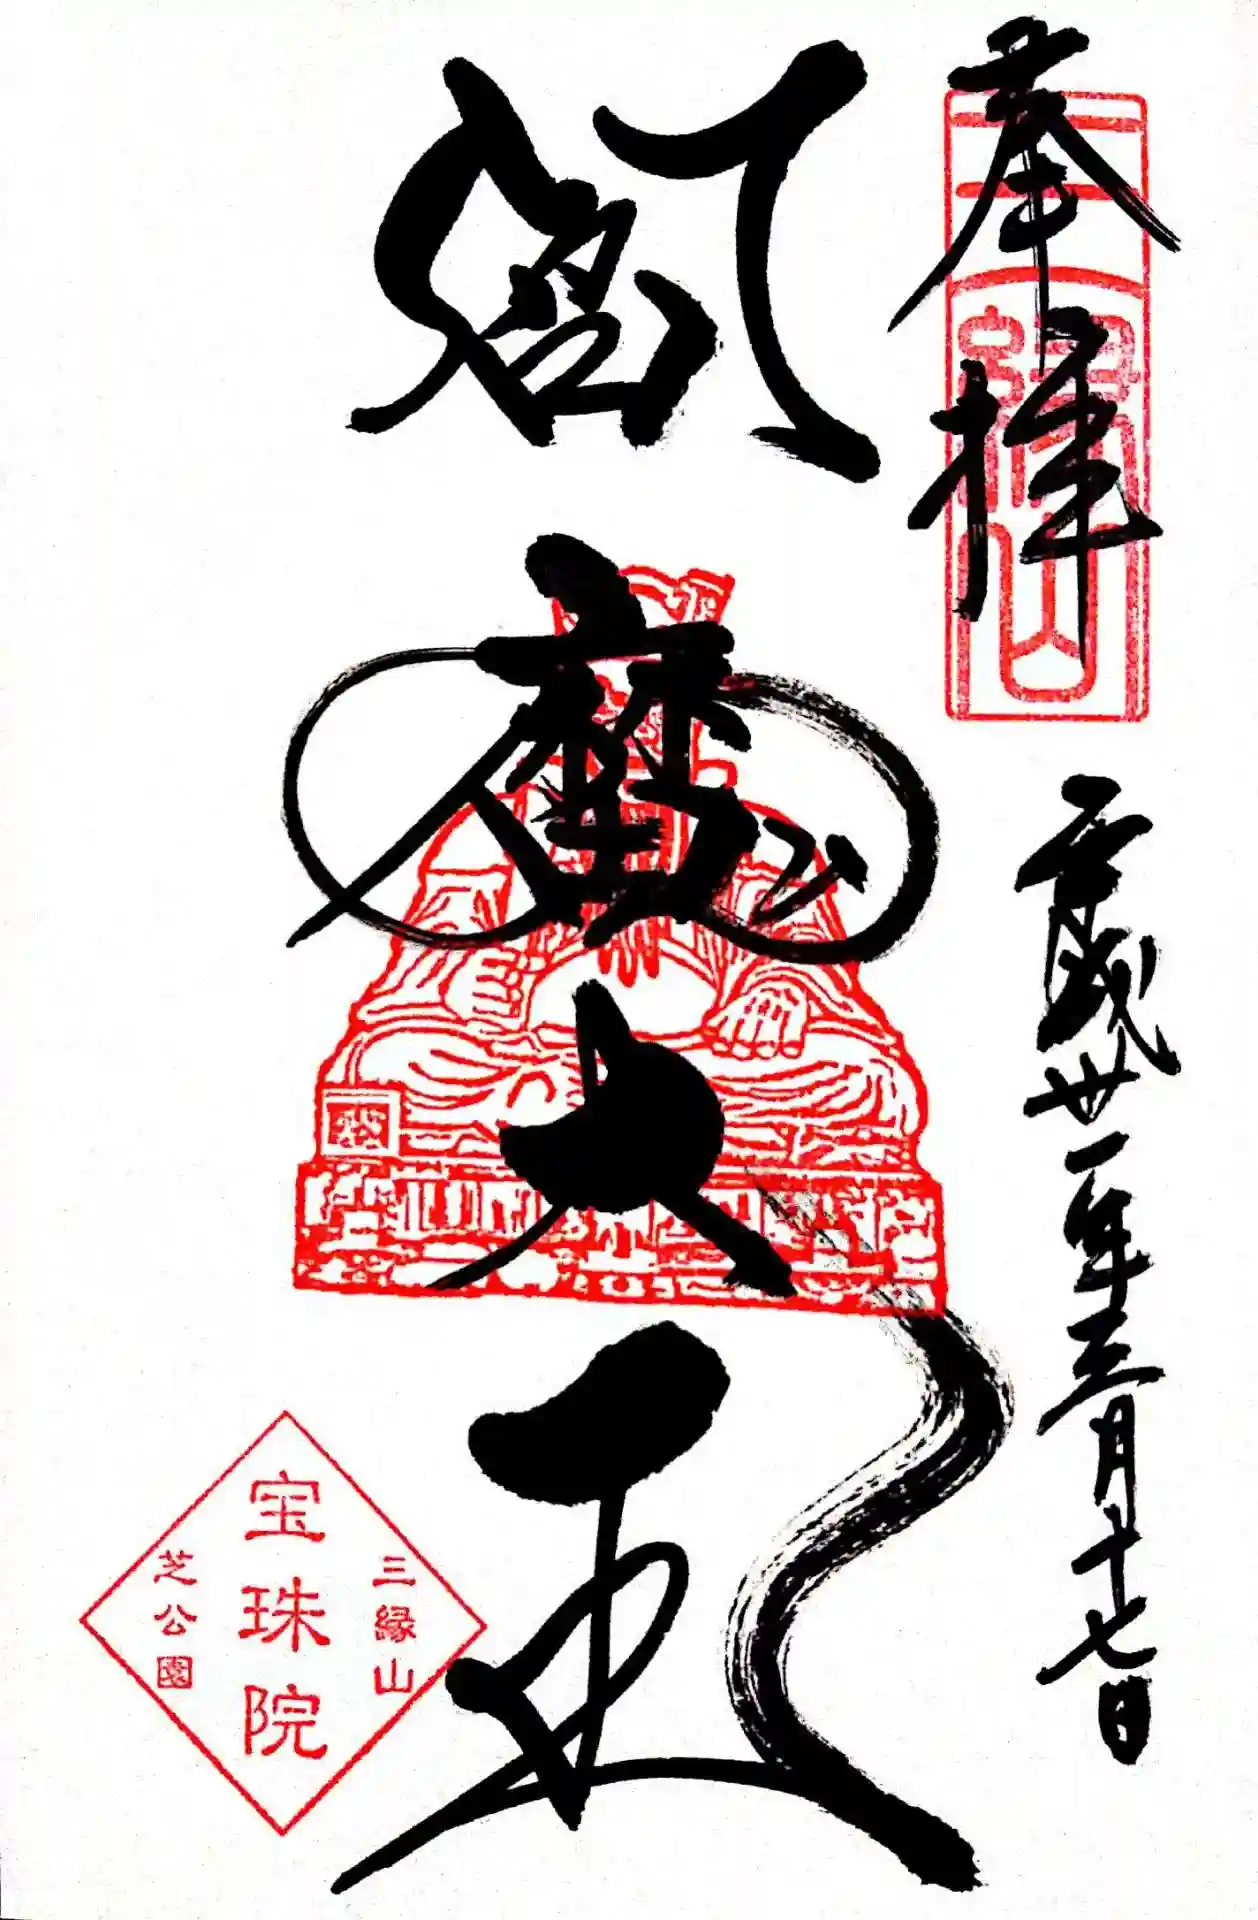 奉拝
三縁山
平成卅一年三月十七日
閻魔大王
三縁山
宝珠院
芝公園